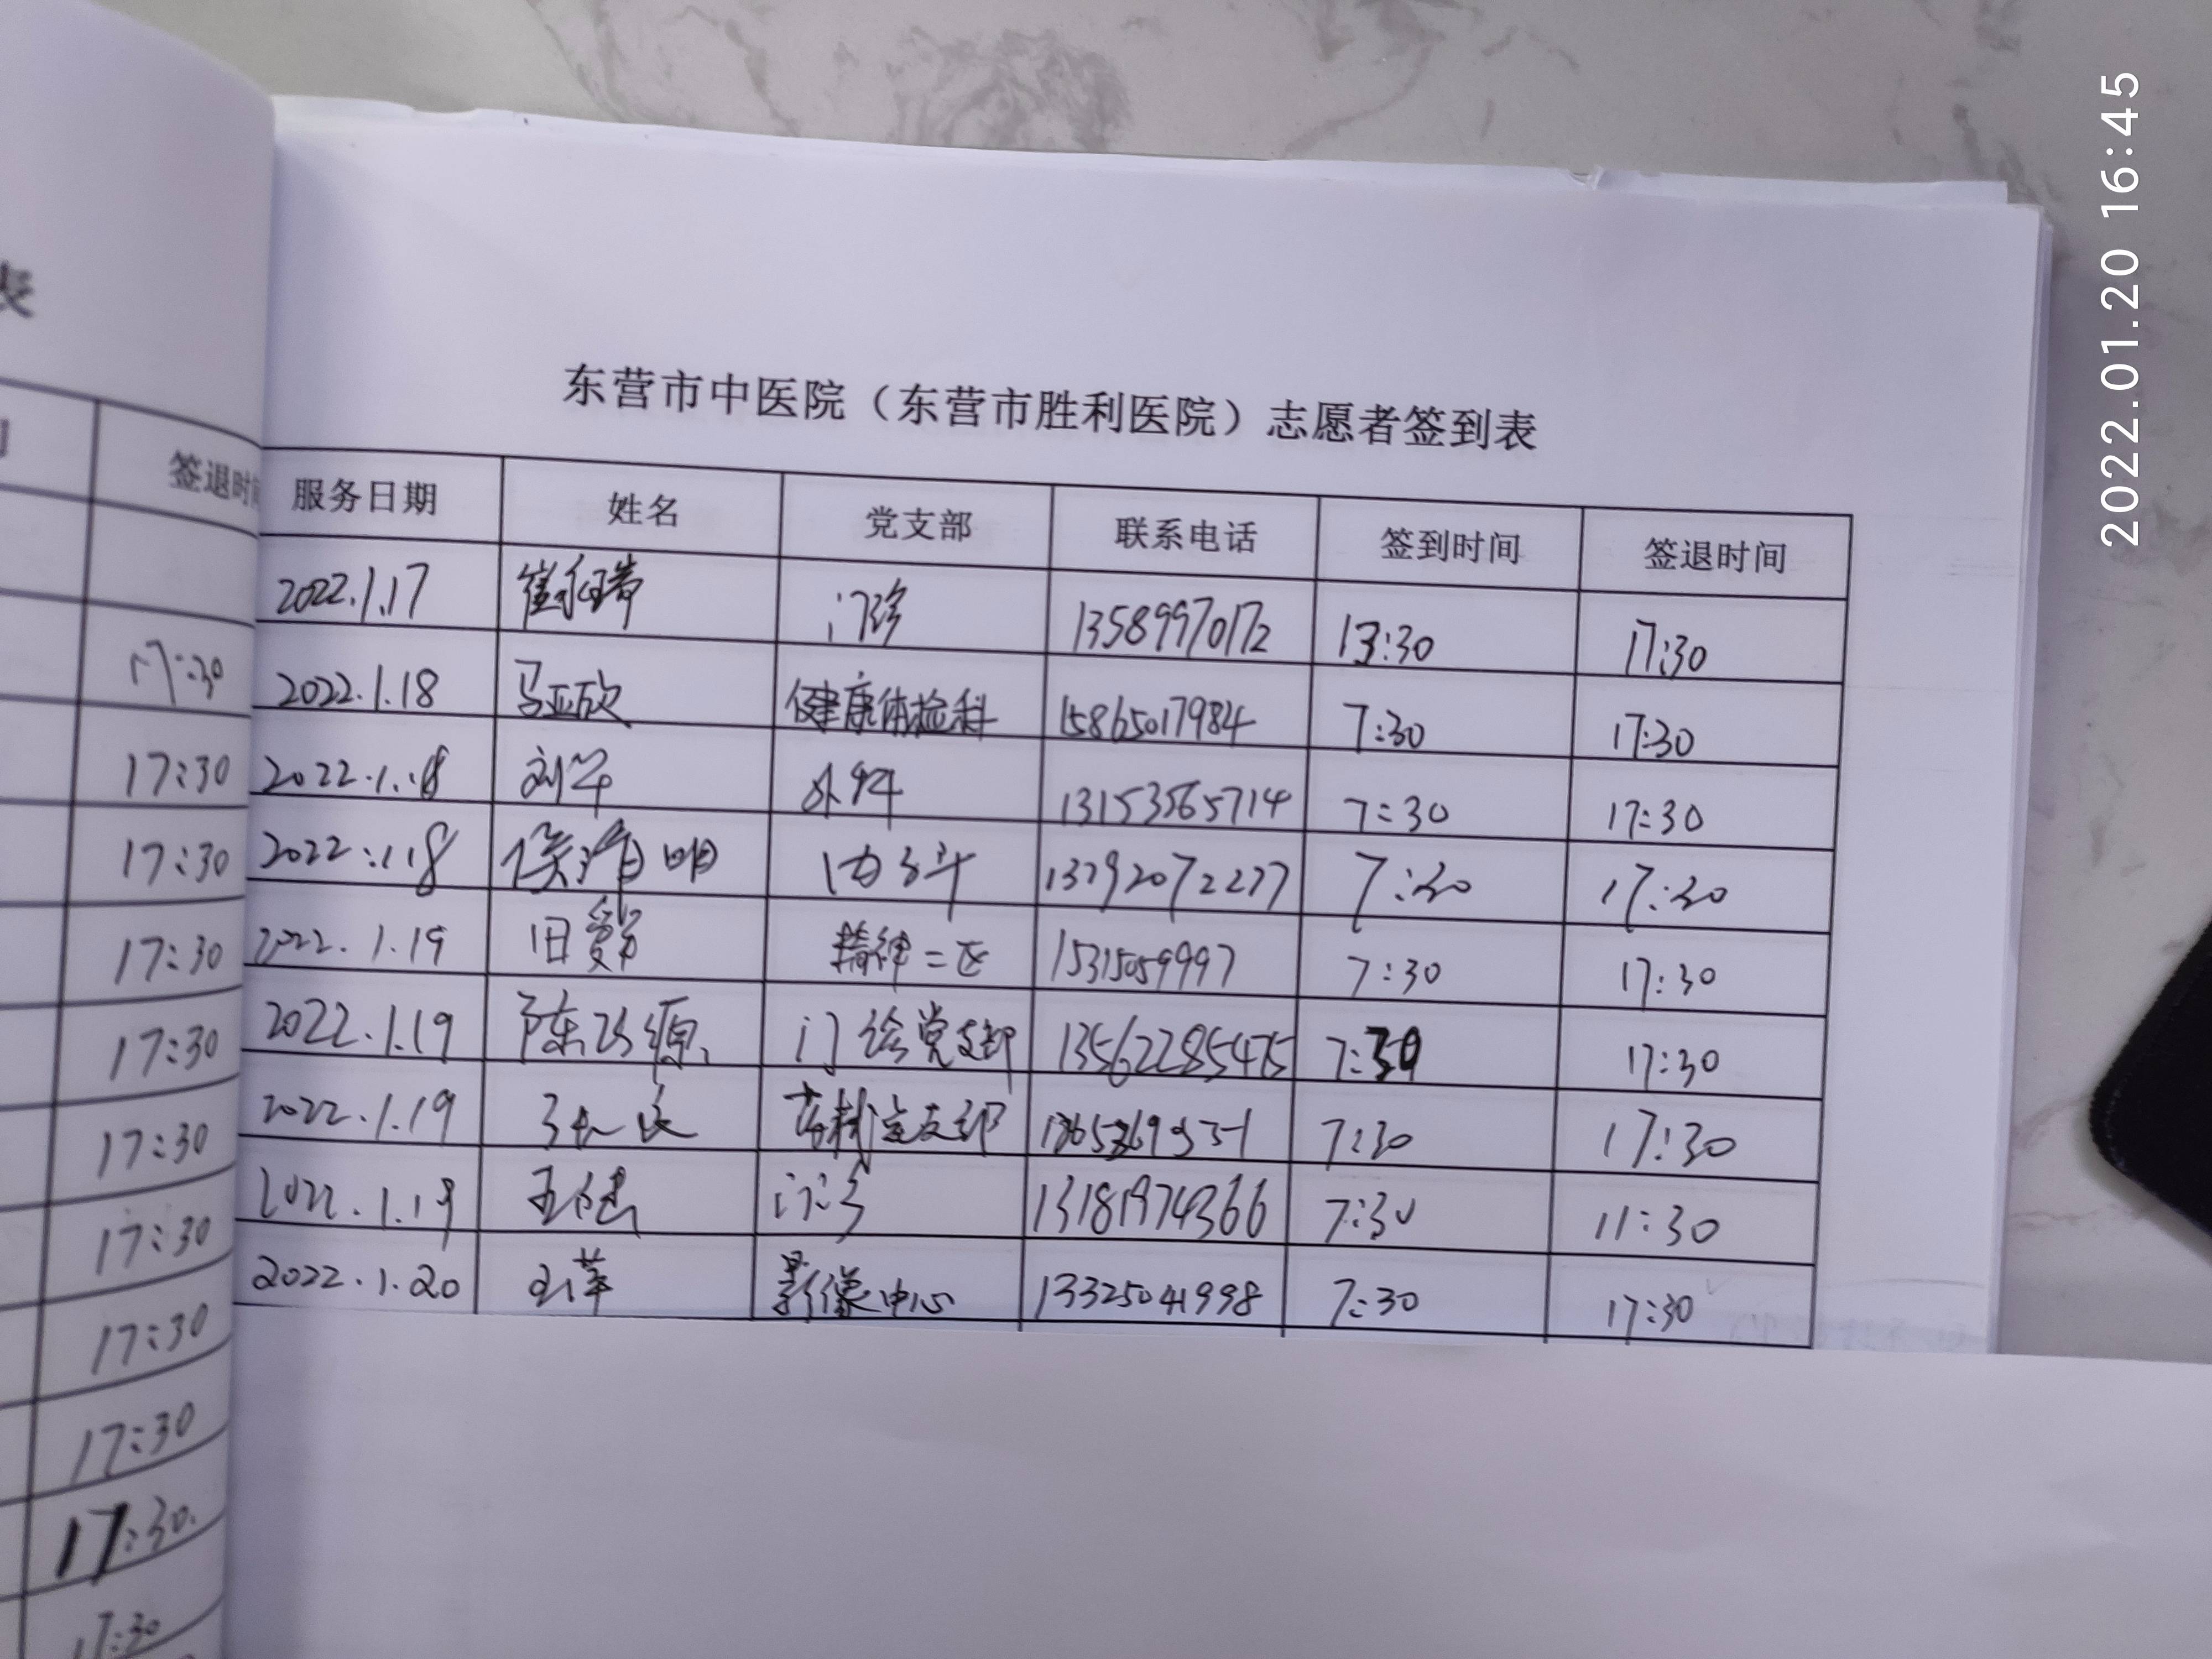 2022.01.20 16:45
表
签退时间
17:30
17:30
17:30
17:30
17:30
17:30
17:30
17:30
17:30
17:30.
17:30
东营市中医院（东营市胜利医院）志愿者签到表
服务日期 姓名 党支部 联系电话 签到时间 签退时间
2022.1.17 崔 门诊 13589970172 13:30 17:30
2022.1.18 马亚欣 健康体检科 15865017984 7:30 17:30
2022.1.18 刘军 外科 13153565714 7:30 17:30
2022.1.18 侯 明 内科 13792072277 7:30 17:30
2022.1.19 精神二区 15315059997 7:30 17:30
2022.1.19 陈 源 门诊党支部 13562285475 7:30 17:30
2022.1.19 支部 7:30 17:30
2022.1.19 王 门诊 13181974366 7:30 11:30
2022.1.20 影像中心 13325041998 7:30 17:30